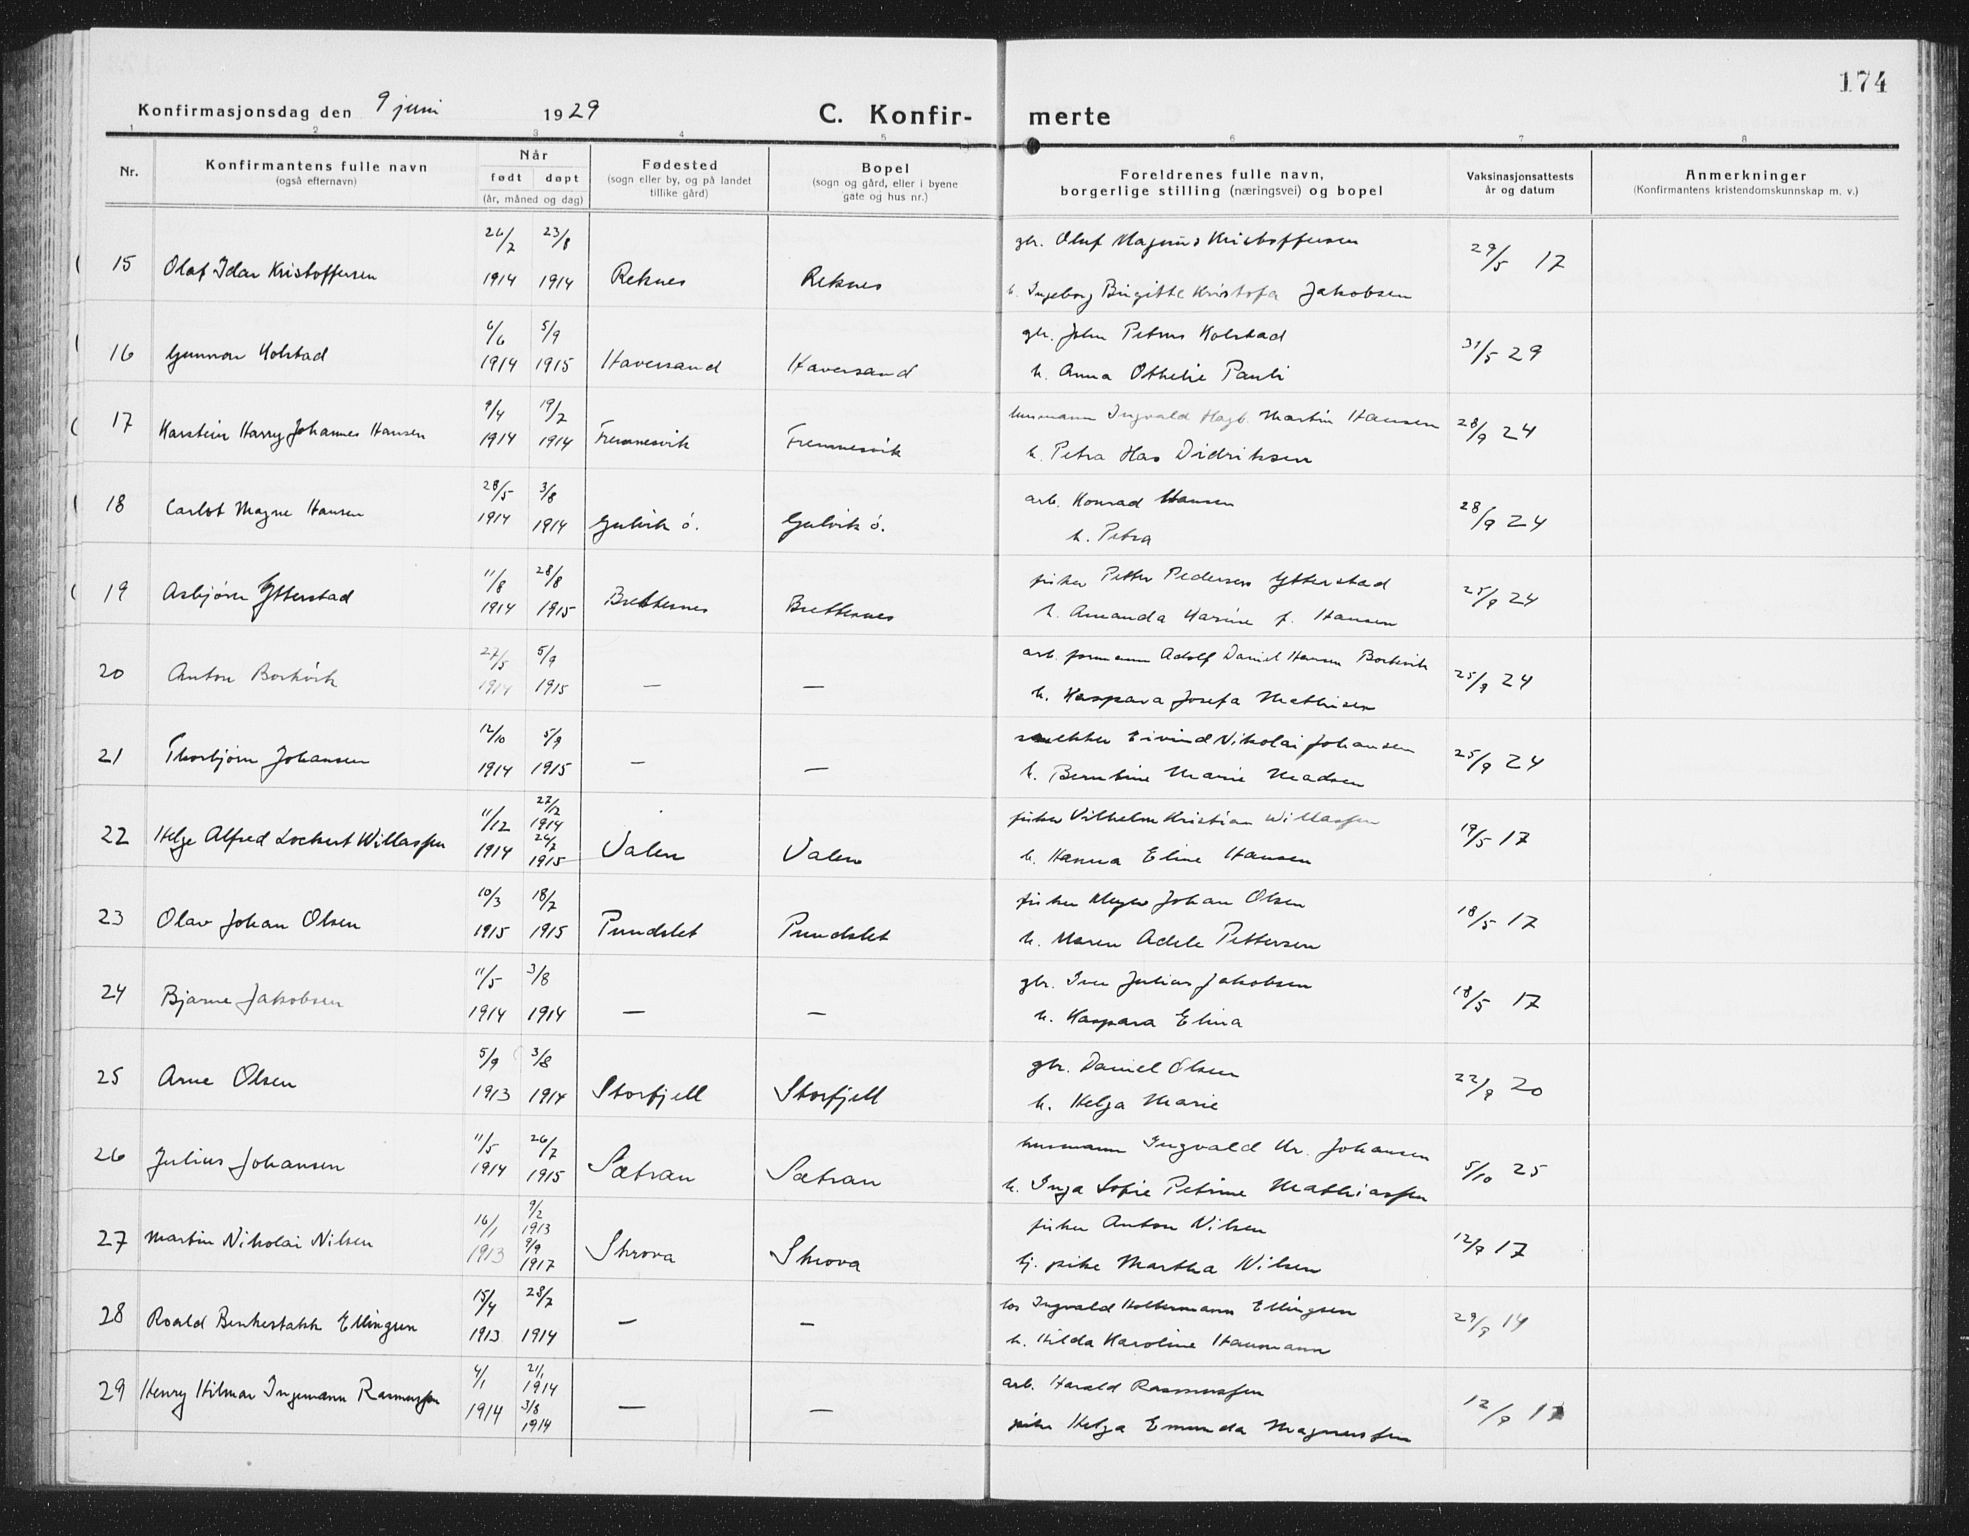 174
Konfirmasjonsdag den 9 juni 1929 C. Konfir- merte
1 2 3 4 5 6 7 8
Nr. Konfirmantens fulle navn (også efternavn) Når født døpt (år, måned og dag) Fødested (sogn eller by, og på landet tillike gård) Bopel (sogn og gård, eller i byene gate og hus nr.) Foreldrenes fulle navn, borgerlige stilling (næringsvei) og bopel Vaksinasjonsattests år og datum Anmerkninger (Konfirmantens kristendomskunnskap m. v.)
15 Olaf Idar Kristoffersen 26/7 1914 23/8 1914 Reknes Reknes gbr. Oluf Magnus Kristoffersen 29/5 17
h. Ingeborg Birgitte Kristofa Jakobsen
16 Gunnar Kolstad 6/6 1914 5/9 1915 Haversand Haversand gbr. John Petrus Kolstad 31/5 29
h. Anna Othelie Pauli
17 Karstein Harry Johannes Hansen 9/4 1914 19/7 1914 Fremnesvik Fremnesvik husmann Ingvald Hagb. Martin Hansen 28/9 24
h. Petra Has Didriksen
18 Carlot Magne Hansen 28/5 1914 3/8 1914 Gulvik ö. Gulvik ö. arb. Konrad Hansen 28/9 24
h. Petra
19 Asbjörn Ytterstad 11/8 1914 28/8 1915 Brettesnes Brettesnes fisker Petter Pedersen Ytterstad 25/9 24
h. Amanda Karine f. Hansen
20 Anton Borkvik 27/5 1914 5/9 1915 — — arb. formann Adolf Daniel Hansen Borkvik 25/9 24
h. Kaspara Josefa Mathisen
21 Thorbjörn Johansen 12/10 1914 5/9 1915 — — snekker Eivind Nikolai Johansen 25/9 24
h. Berntine Marie Madsen
22 Helge Alfred Lockert Willassen 11/12 1914 27/12 1914 26/7 1915 Valen Valen fisker Vilhelm Kristian Willassen 19/5 17
h. Hanna Eline Hansen
23 Olav Johan Olsen 10/3 1915 18/7 1915 Pundslet Pundslet fisker Meyer Johan Olsen 18/5 17
h. Maren Adele Pettersen
24 Bjarne Jakobsen 11/5 1914 3/8 1914 — — gbr. Iver Julius Jakobsen 18/5 17
h. Kaspara Elina
25 Arne Olsen 5/9 1913 3/8 1914 Storfjell Storfjell gbr. Daniel Olsen 22/9 20
h. Helga Marie
26 Julius Johansen 11/5 1914 26/7 1915 Sætran Sætran husmann Ingvald Kr. Johansen 5/10 25
h. Inga Sofie Petrine Mathiassen
27 Martin Nikolai Nilsen 16/1 1913 9/2 1913 9/9 1917 Skrova Skrova fisker Anton Nilsen 12/9 17
tj. pike Martha Nilsen
28 Roald Benkestakk Ellingsen 15/4 1913 28/7 1914 — — los Ingvald Holtermann Ellingsen 29/9 14
h. Hilda Karoline Hausmann
29 Henry Hilmar Ingemann Rasmussen 4/1 1914 21/1 1914 3/8 1914 — — arb. Harald Rasmussen 12/9 17
pike Helga Emunda Magnussen